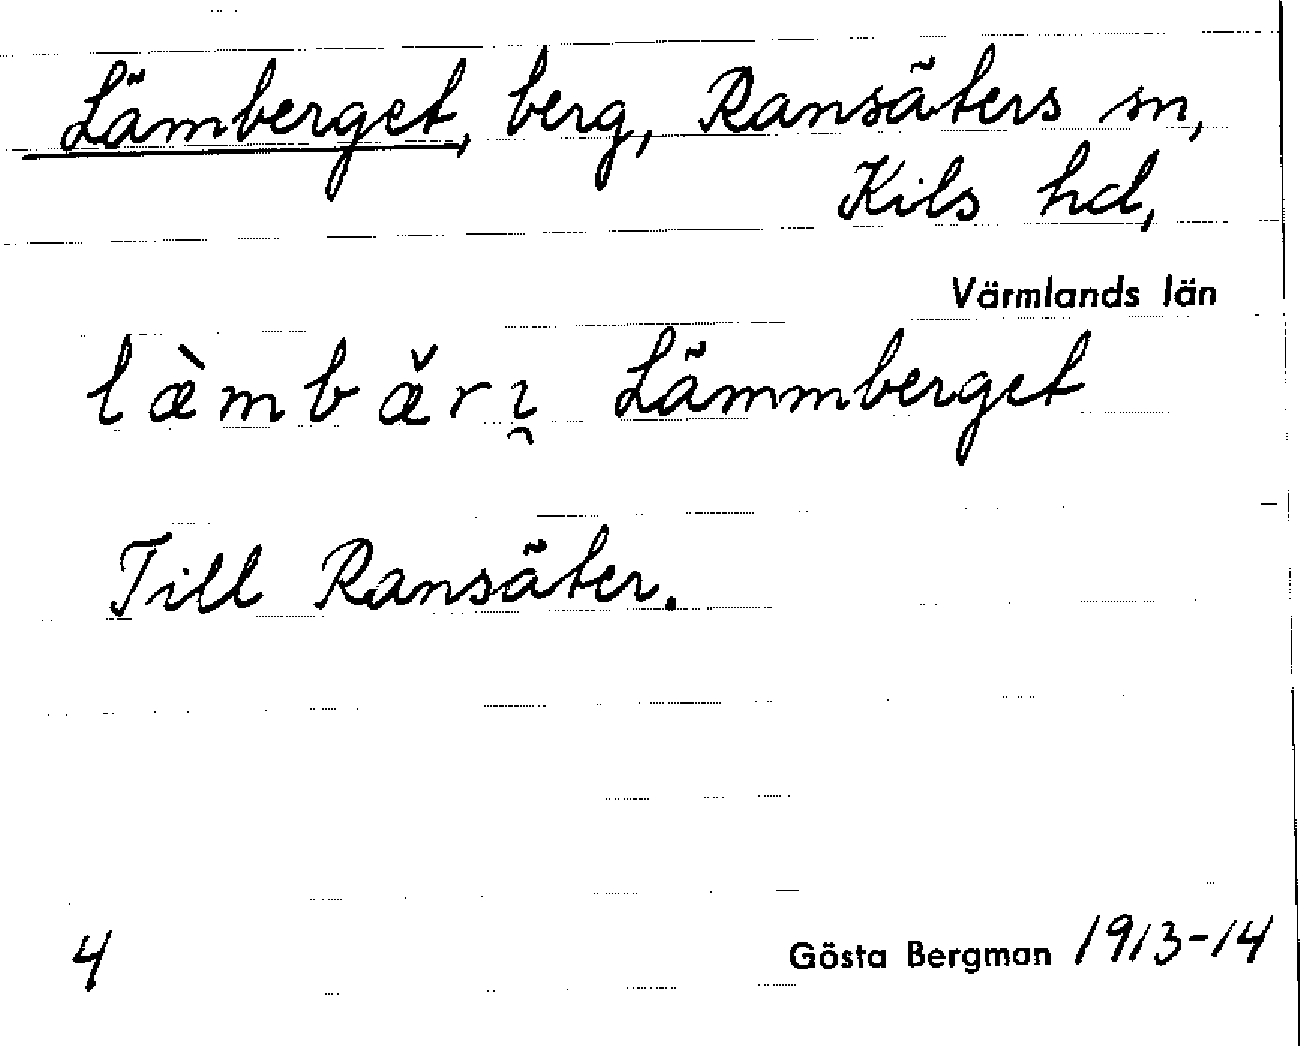 Lämberget, berg, Ransäters sn,
Kils hd,
Värmlands län
læ̀mbæ̌rɩ̯ Lämmberget
Till Ransäter.
4 Gösta Bergman 1913-14